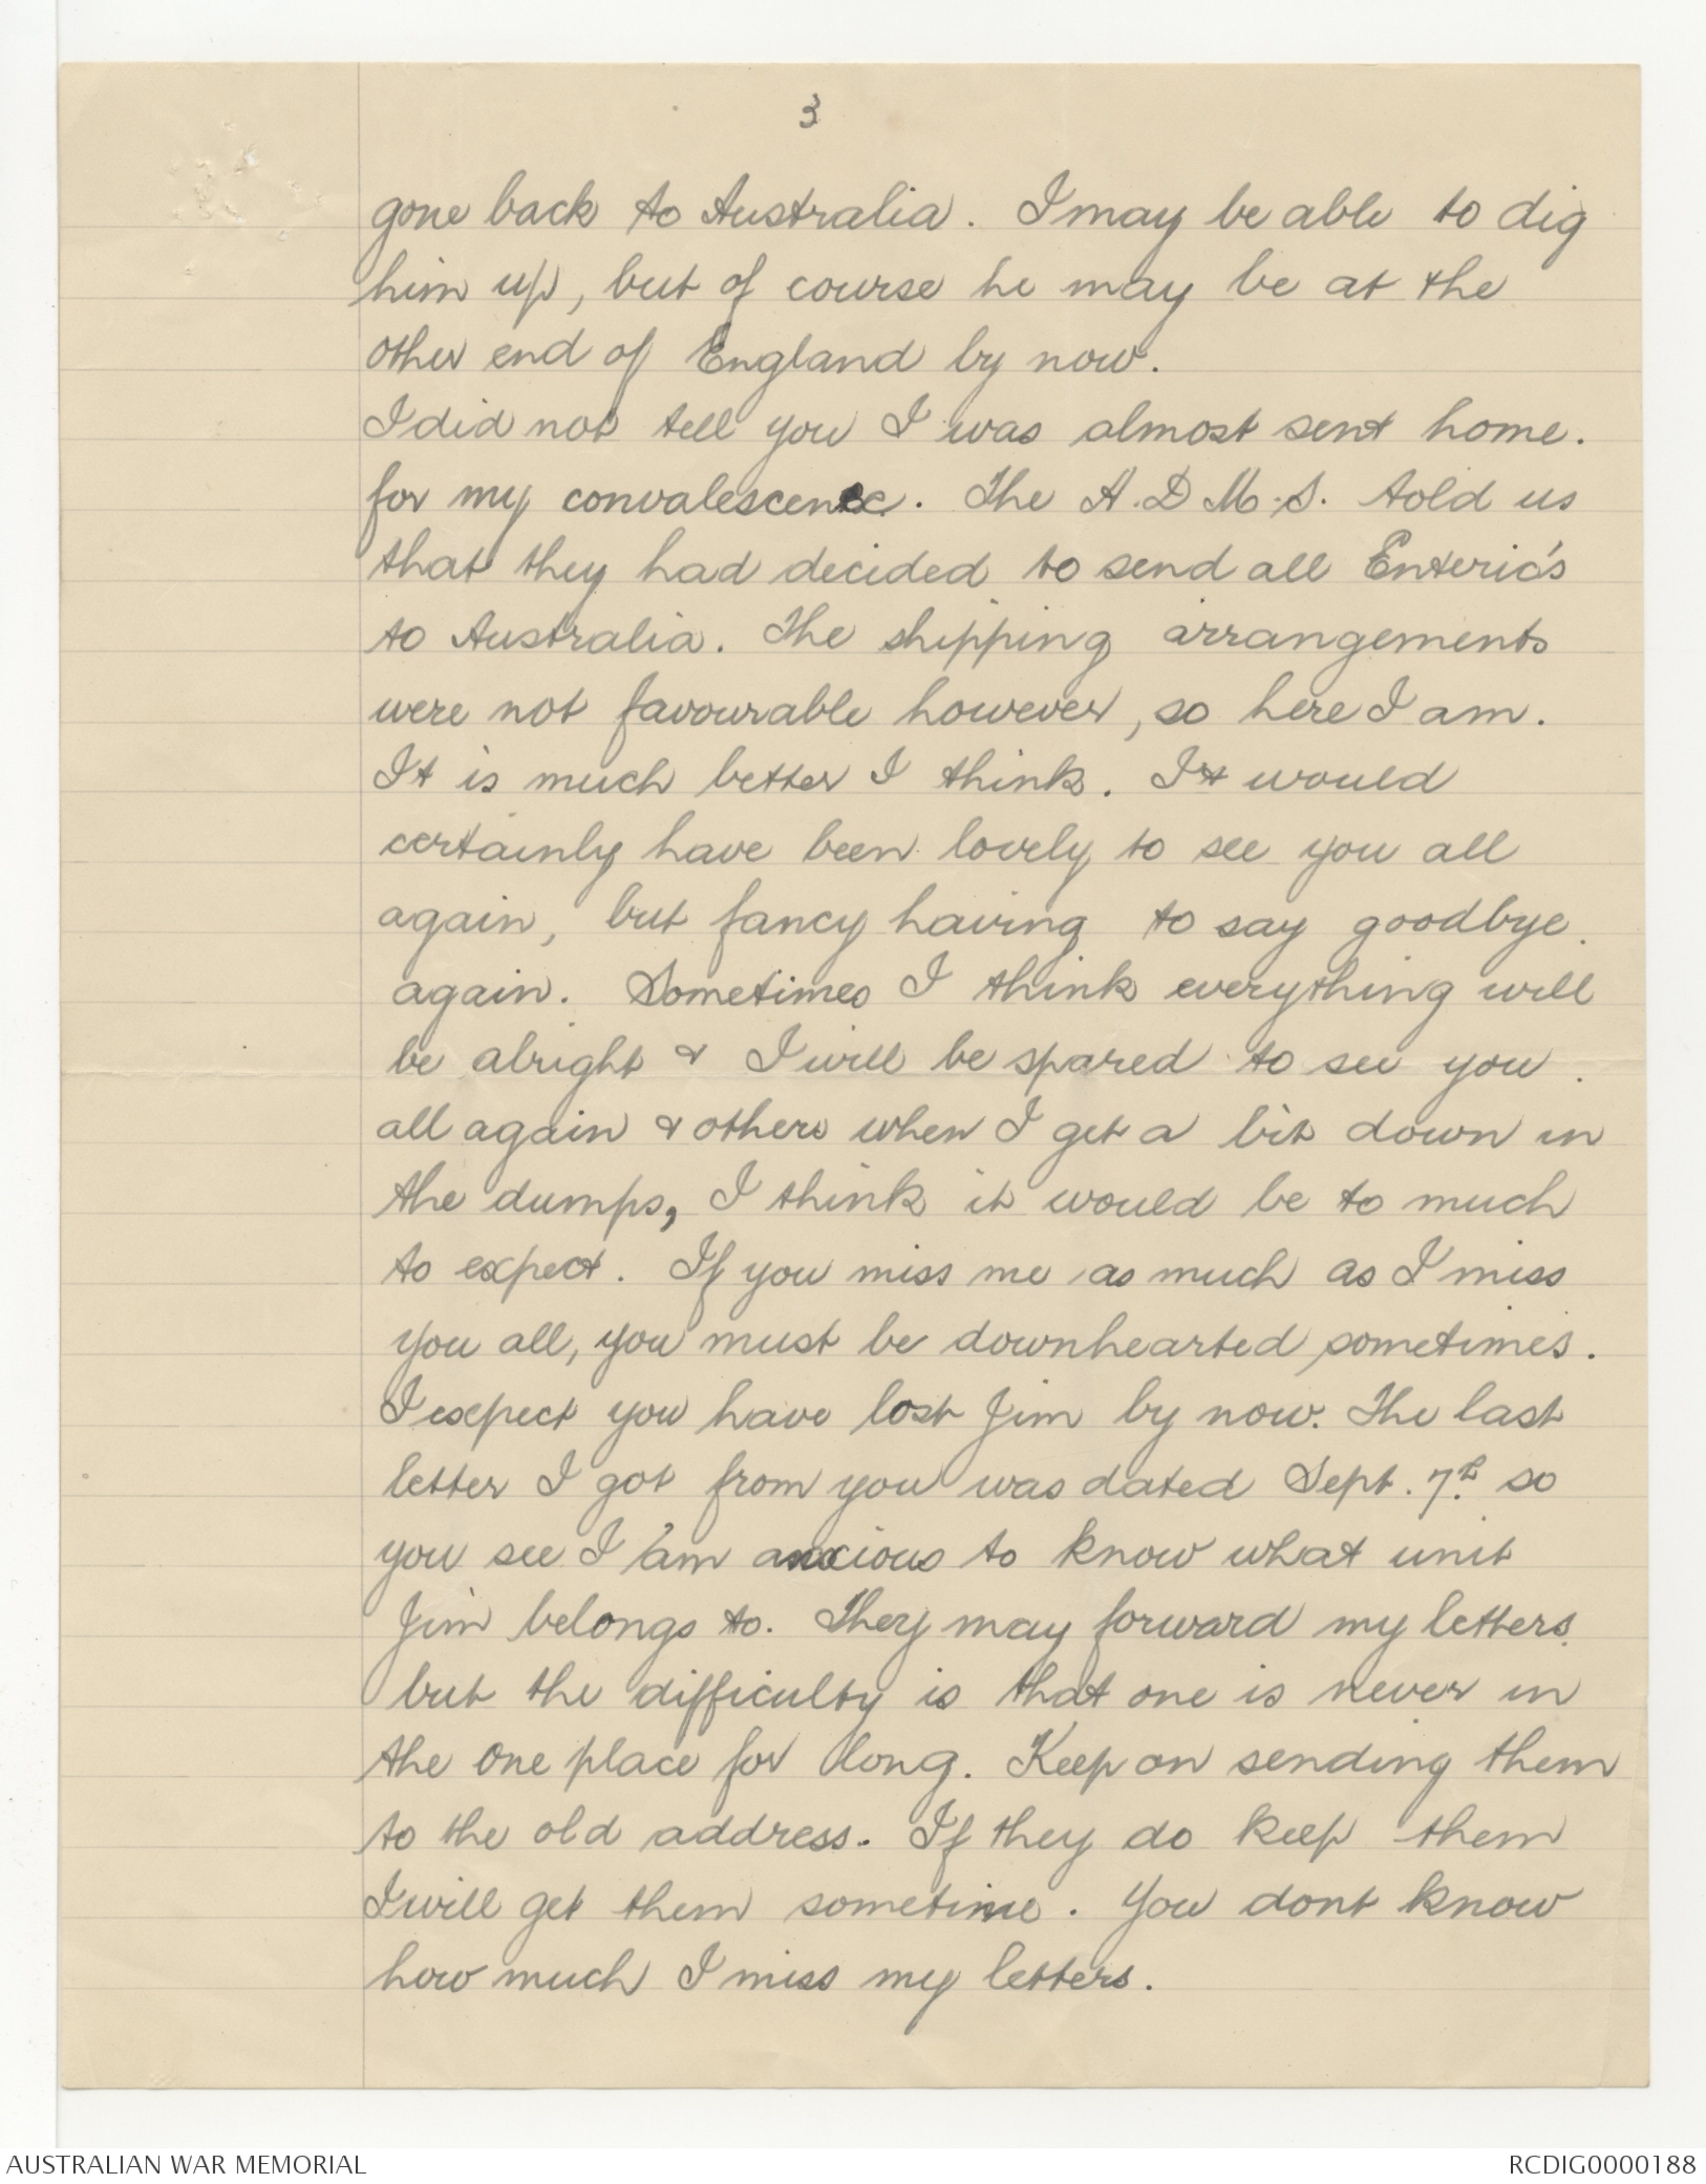 3
gone back to Australia. I may be able to dig
him up, but of course he may be at the
other end of England by now.
I did not tell you I was almost sent home.
for my convalescence. The A.D.M.S. told us
that they had decided to send all Enteric's
to Australia. The shipping arrangements
were not favourable however, so here I am.
It is much better I think. It would
certainly have been lovely to see you all
again, but fancy having to say goodbye.
again. Sometimes I think everything will
be alright & I will be spared to see you.
all again & others when I get a bit down in
the dumps, I think it would be to much
to expect. If you miss me as much as I miss
you all, you must be downhearted sometimes.
I expect you have lost Jim by now. The last
letter I got from you was dated Sept. 7th so
you see I am anxious to know what unit
Jim belongs to. They may forward my letters
but the difficulty is that one is never in
the one place for long. Keep on sending them
to the old address. If they do keep them
I will get them sometime. You dont know
how much I miss my letters.
AUSTRALIAN WAR MEMORIAL
RCDIG0000188